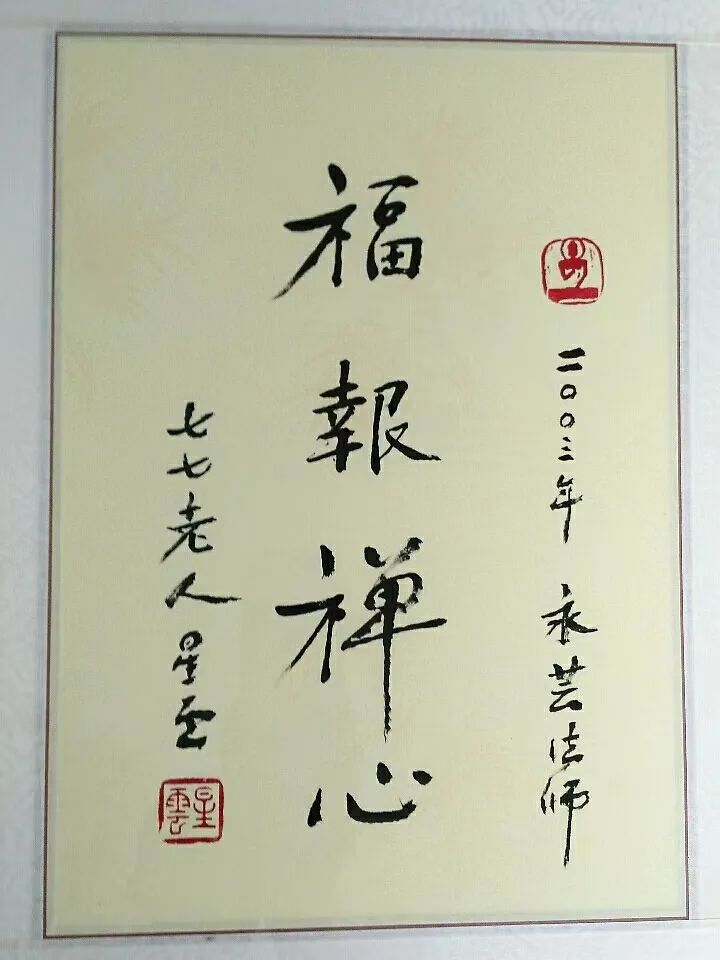 二〇〇三年 永芸法师
福報禅心
七七老人星雲
星雲